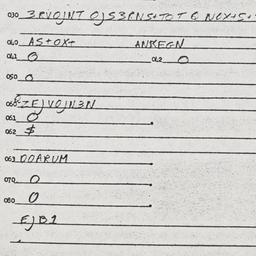 030 3RVOJNT OJS3RNS+TOT
040 AS+OX+ ANREGN
041 O 042 O
050 O
060 ZEJVOJN3N
061 O
062 $
063 OOARUM
070 O
080 O
EJB1